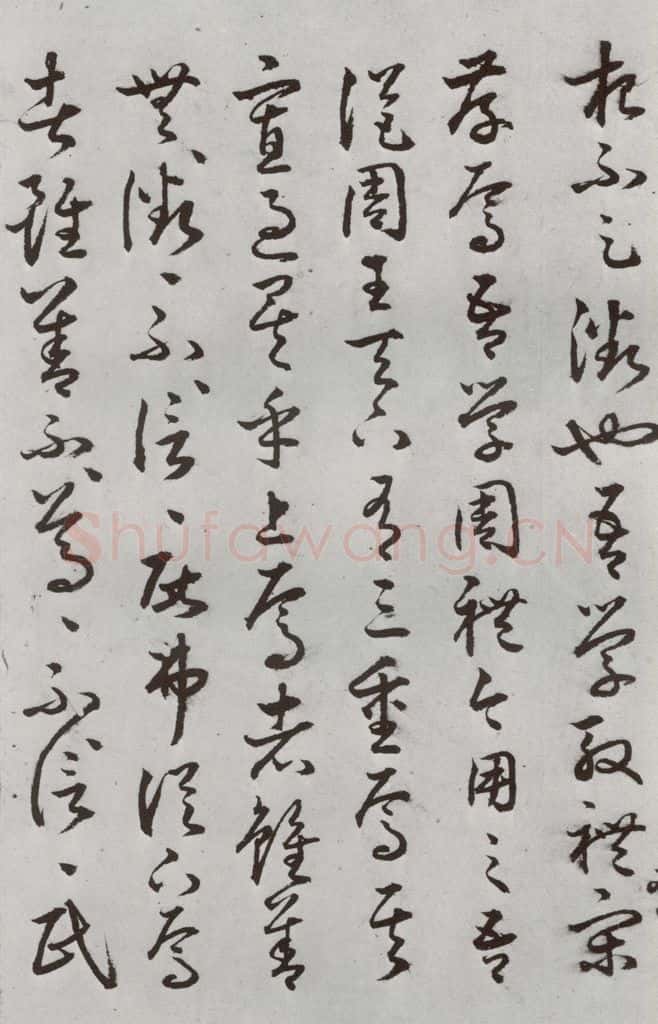 杞不足徵也吾学殷禮宋
有
存焉吾学周禮今用之吾
從周王天下有三重焉其
寡過矣乎上焉者雖善
無、徵、不、信、民弗從下焉
者雖善不、尊、不、信、民
Shufawang.CN